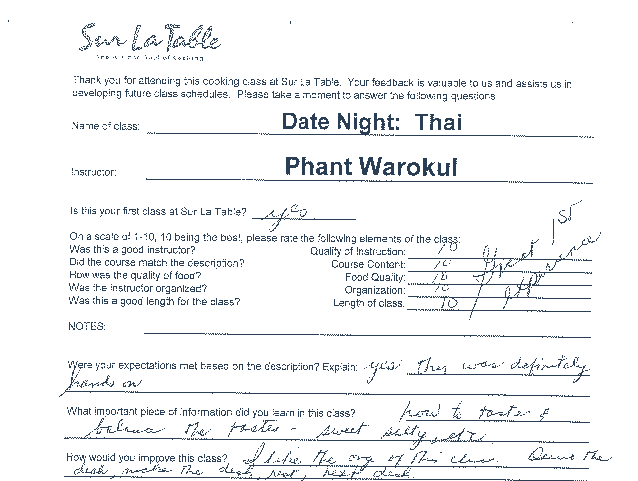 Sur La Table
Thank you for attending this cooking class at Sur La Table. Your feedback is valuable to us and assists us in
developing future class schedules. Please take a moment to answer the following questions
Name of class: Date Night: Thai
Instructor: Phant Warokul
Is this your first class at Sur La Table? yes
On a scale of 1-10, 10 being the best, please rate the following elements of the class:
Was this a good instructor? Quality of Instruction: 10
Did the course match the description? Course Content: 10
How was the quality of food? Food Quality: 10
Was the instructor organized? Organization: 10
Was this a good length for the class? Length of class. 10
Great 1st
NOTES:
Were your expectations met based on the description? Explain: yes this was definitely
hands on
What important piece of information did you learn in this class? how to taste &
the taste - sweet salty
How would you improve this class? I like the org of this class. the
dish, make the dish, next dish.